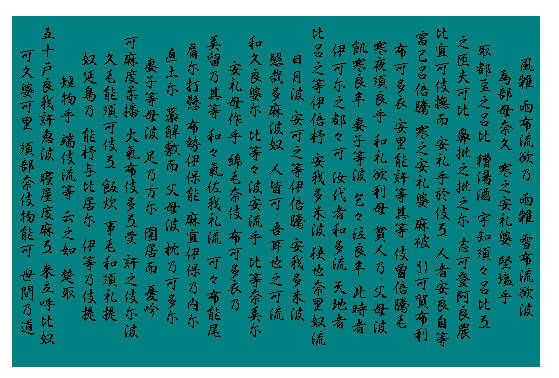 風雜 雨布流欲乃 雨雜 雪布流欲波
為部母奈久 寒之安礼婆 堅塩乎
取都豆之呂比 糟湯酒 宇知須々呂比弖
之匝夫可比 鼻批之批之尓 志可登阿良農
比宜可伎撫而 安礼乎於伎弖 人者安良自等
富己呂倍騰 寒之安礼婆 麻被 引可賀布利
布可多衣 安里能許等其等 伎曽倍騰毛
寒夜須良乎 和礼欲利母 貧人乃 父母波
飢寒良牟 妻子等波 乞々泣良牟 此時者
伊可尓之都々可 汝代者和多流 天地者
比呂之等伊倍杼 安我多米波 狭也奈里奴流
日月波 安可之等伊倍騰 安我多米波
照哉多麻波奴 人皆可 吾耳也之可流
和久良婆尓 比等々波安流乎 比等奈美尓
安礼母作乎 綿毛奈伎 布可多衣乃
美留乃其等 和々氣佐我礼流 可々布能尾
肩尓打懸 布勢伊保能 麻宜伊保乃内尓
直土尓 藁解敷而 父母波 枕乃可多尓
妻子等母波 足乃方尓 囲居而 憂吟
可麻度柔播 火氣布伎多弖受 許之伎尓波
久毛能須可伎弖 飯炊 事毛和須礼提
奴延鳥乃 能杼与比居尓 伊等乃伎提
短物乎 端伎流等 云之如 楚取
五十戸良我許恵波 寝屋度麻弖 来立呼比奴
可久婆可里 須部奈伎物能可 世間乃道